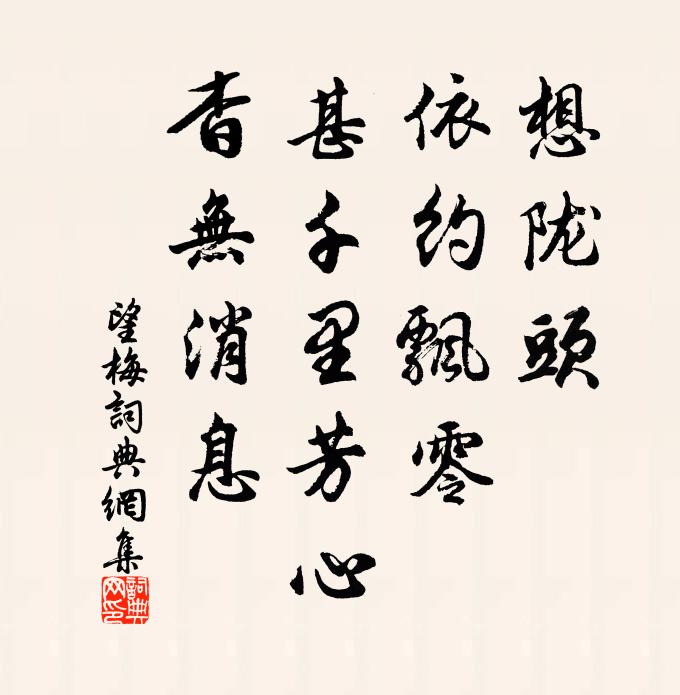 想陇頭
依约飄零
甚千里芳心
杳無消息
望梅詞典網集
詞典网印